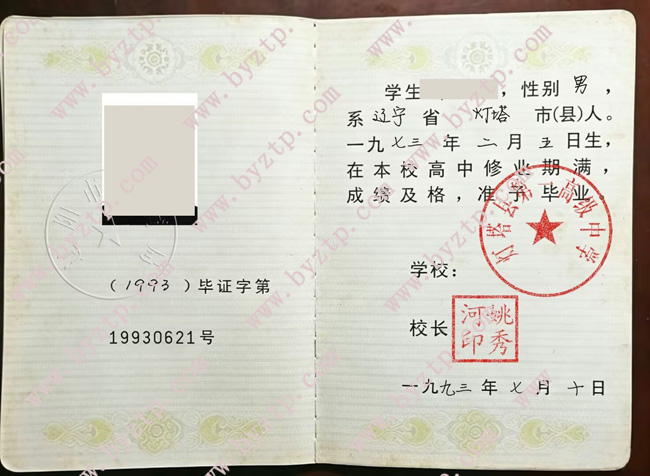 （1993）毕证字第
19930621号
学生，性别 男，
系 辽宁 省 灯塔 市(县)人。
一九七三年 二 月 五 日生，
在本校高中修业期满，
成绩及格，准予毕业。
灯塔县第一高级中学
学校：
校长
姚秀河印
一九九三年 七 月 十 日
www.byztp.com